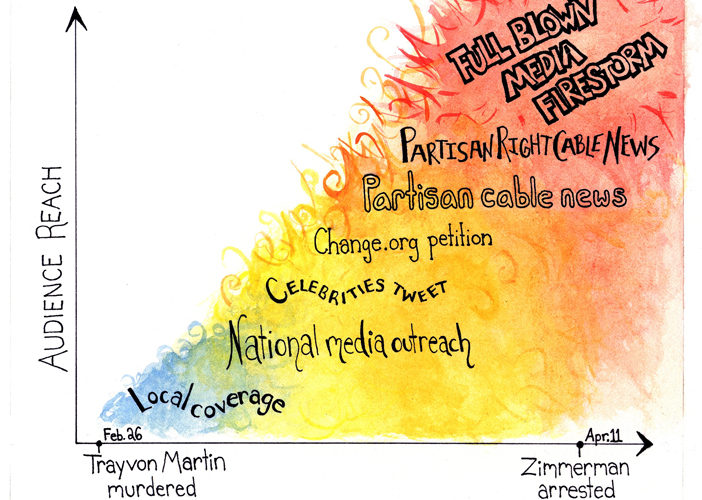 FULL BLOWN
MEDIA
FIRESTORM
PARTISAN RIGHT CABLE NEWS
Partisan cable news
Change.org petition
CELEBRITIES TWEET
National media outreach
Local coverage
AUDIENCE REACH
Feb. 26
Apr. 11
Trayvon Martin
murdered
Zimmerman
arrested